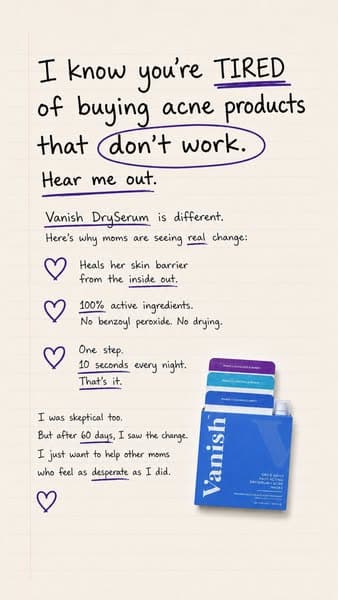 I know you're TIRED
of buying acne products
that don't work.
Hear me out.
Vanish DrySerum is different.
Here's why moms are seeing real change:
Heals her skin barrier
from the inside out.
100% active ingredients.
No benzoyl peroxide. No drying.
One step.
10 seconds every night.
That's it.
I was skeptical too.
But after 60 days, I saw the change.
I just want to help other moms
who feel as desperate as I did.
Vanish